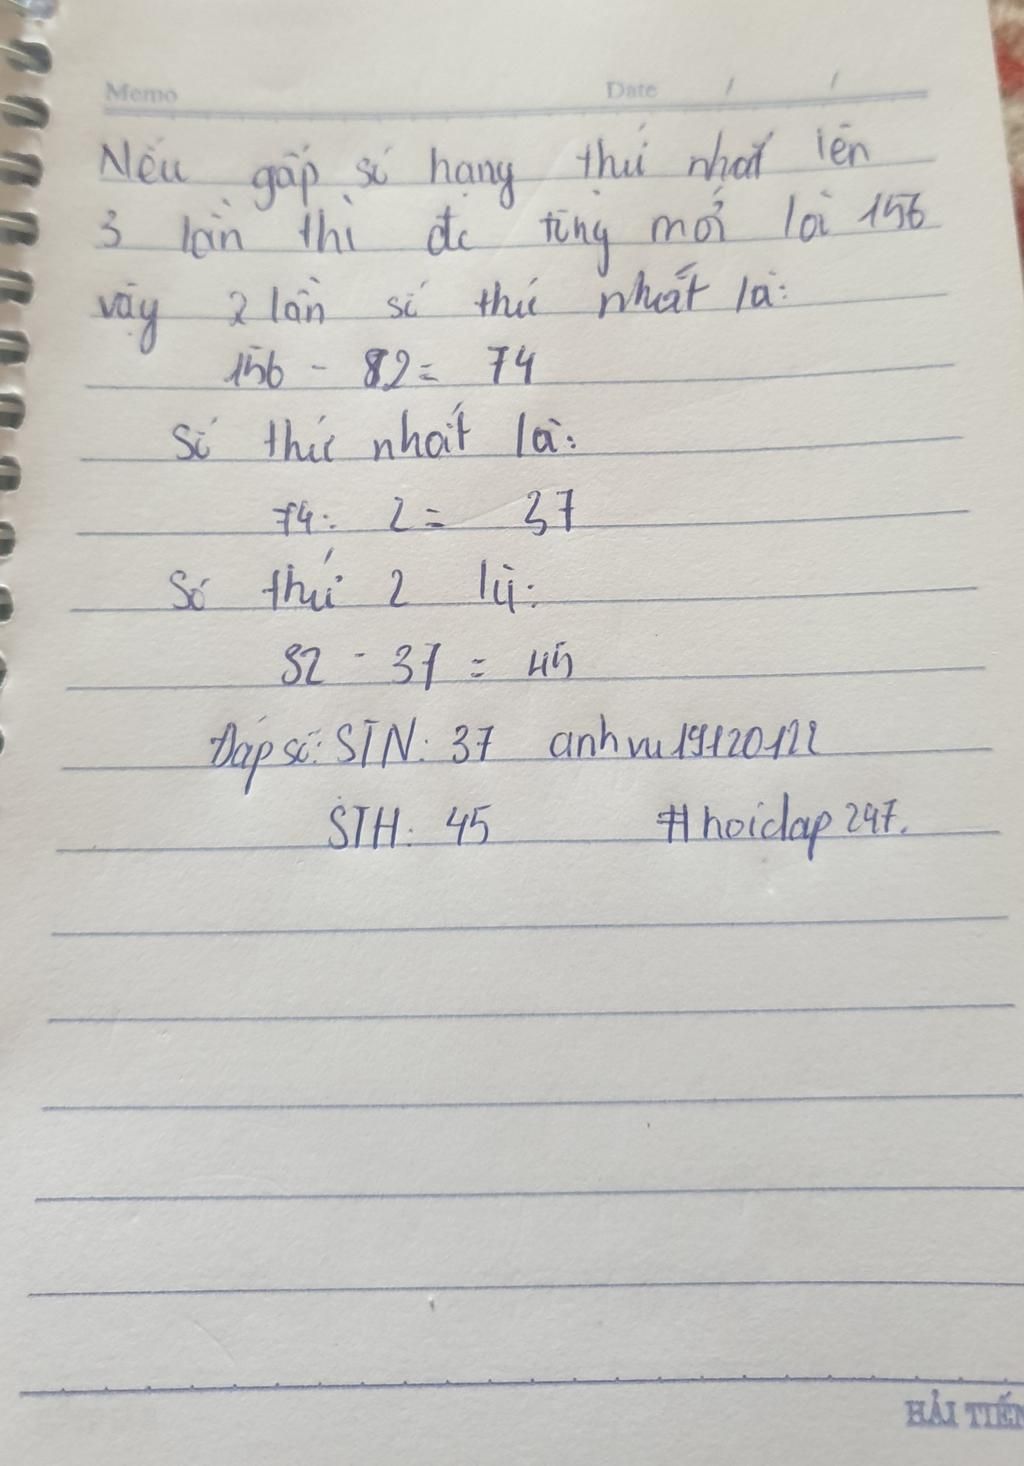 Memo Date / /
Nếu gấp số hạng thứ nhất lên
3 lần thì đc tổng mới là 156
vậy 2 lần số thứ nhất là:
156 - 82 = 74
Số thứ nhất là:
74: 2 = 37
Số thứ 2 là:
82 - 37 = 45
Đáp số: STN: 37 anhvu19120122
STH: 45 #hoidap247.
HẢI TIẾN